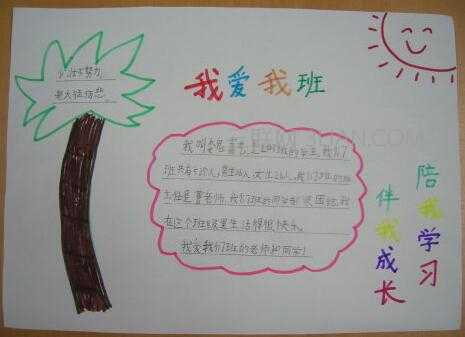 少壮不努力
老大徒伤悲。
我爱我班
我叫娄思嘉,是班的学生,我们
班共有人,男生人,女生人,我们班的班
主任是董老师,我们班的同学都很团结,我
在这个班级里生活得很快乐。
我爱我们班的老师和同学!
陪我学习
伴我成长